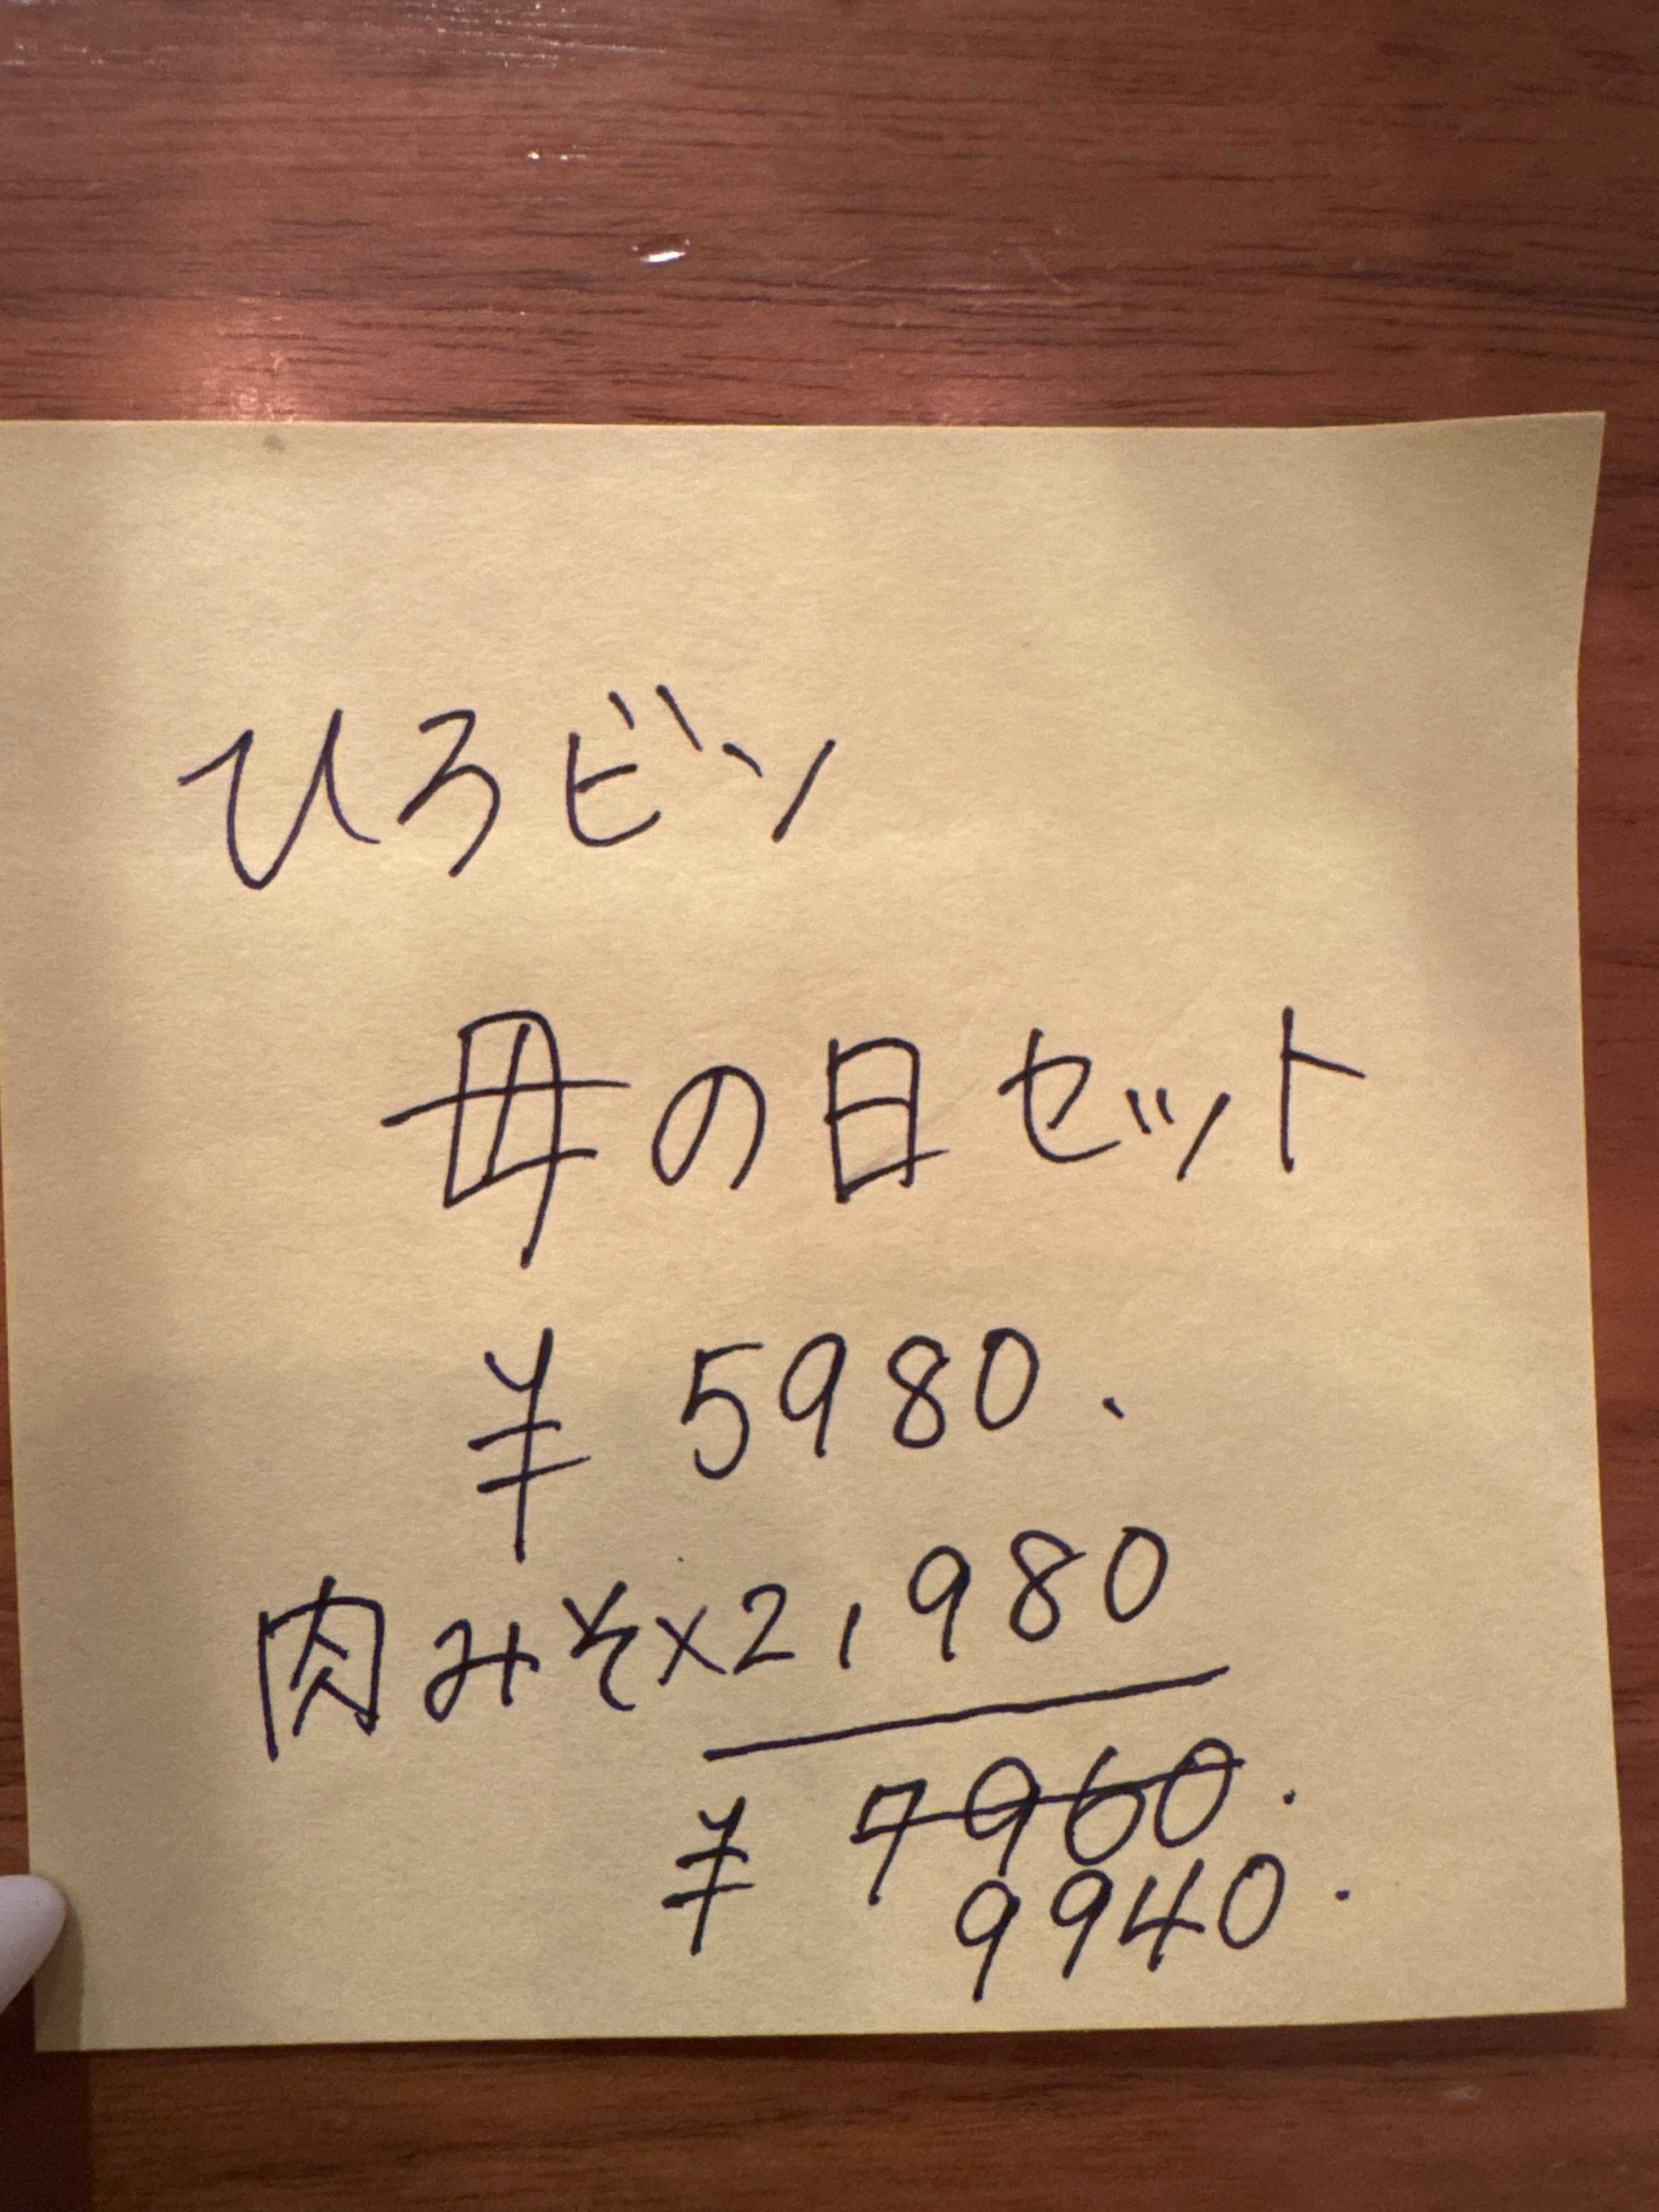 ひろビン
母の日セット
¥ 5980.
肉みそ×2,980
¥ 7960.
9940.